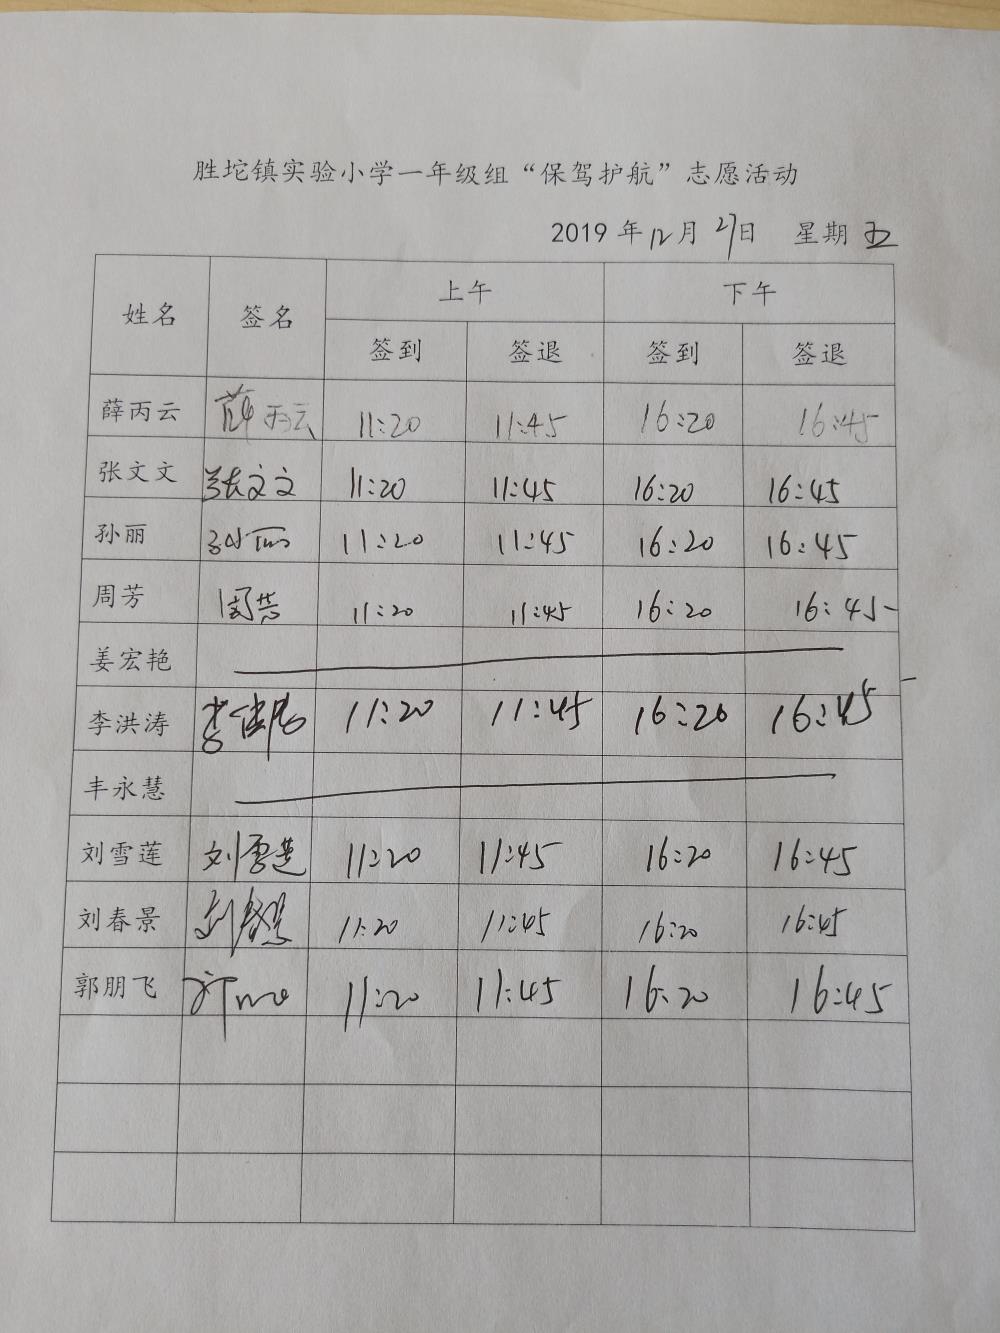 胜坨镇实验小学一年级组“保驾护航”志愿活动
2019年12月27日 星期五
姓名 签名 上午 下午
签到 签退 签到 签退
薛丙云 薛丙云 11:20 11:45 16:20 16:45
张文文 张文文 11:20 11:45 16:20 16:45
孙丽 孙丽 11:20 11:45 16:20 16:45
周芳 周芳 11:20 11:45 16:20 16:45
姜宏艳
李洪涛 11:20 11:45 16:20 16:45
丰永慧
刘雪莲 刘雪莲 11:20 11:45 16:20 16:45
刘春景 刘春景 11:20 11:45 16:20 16:45
郭朋飞 11:20 11:45 16:20 16:45